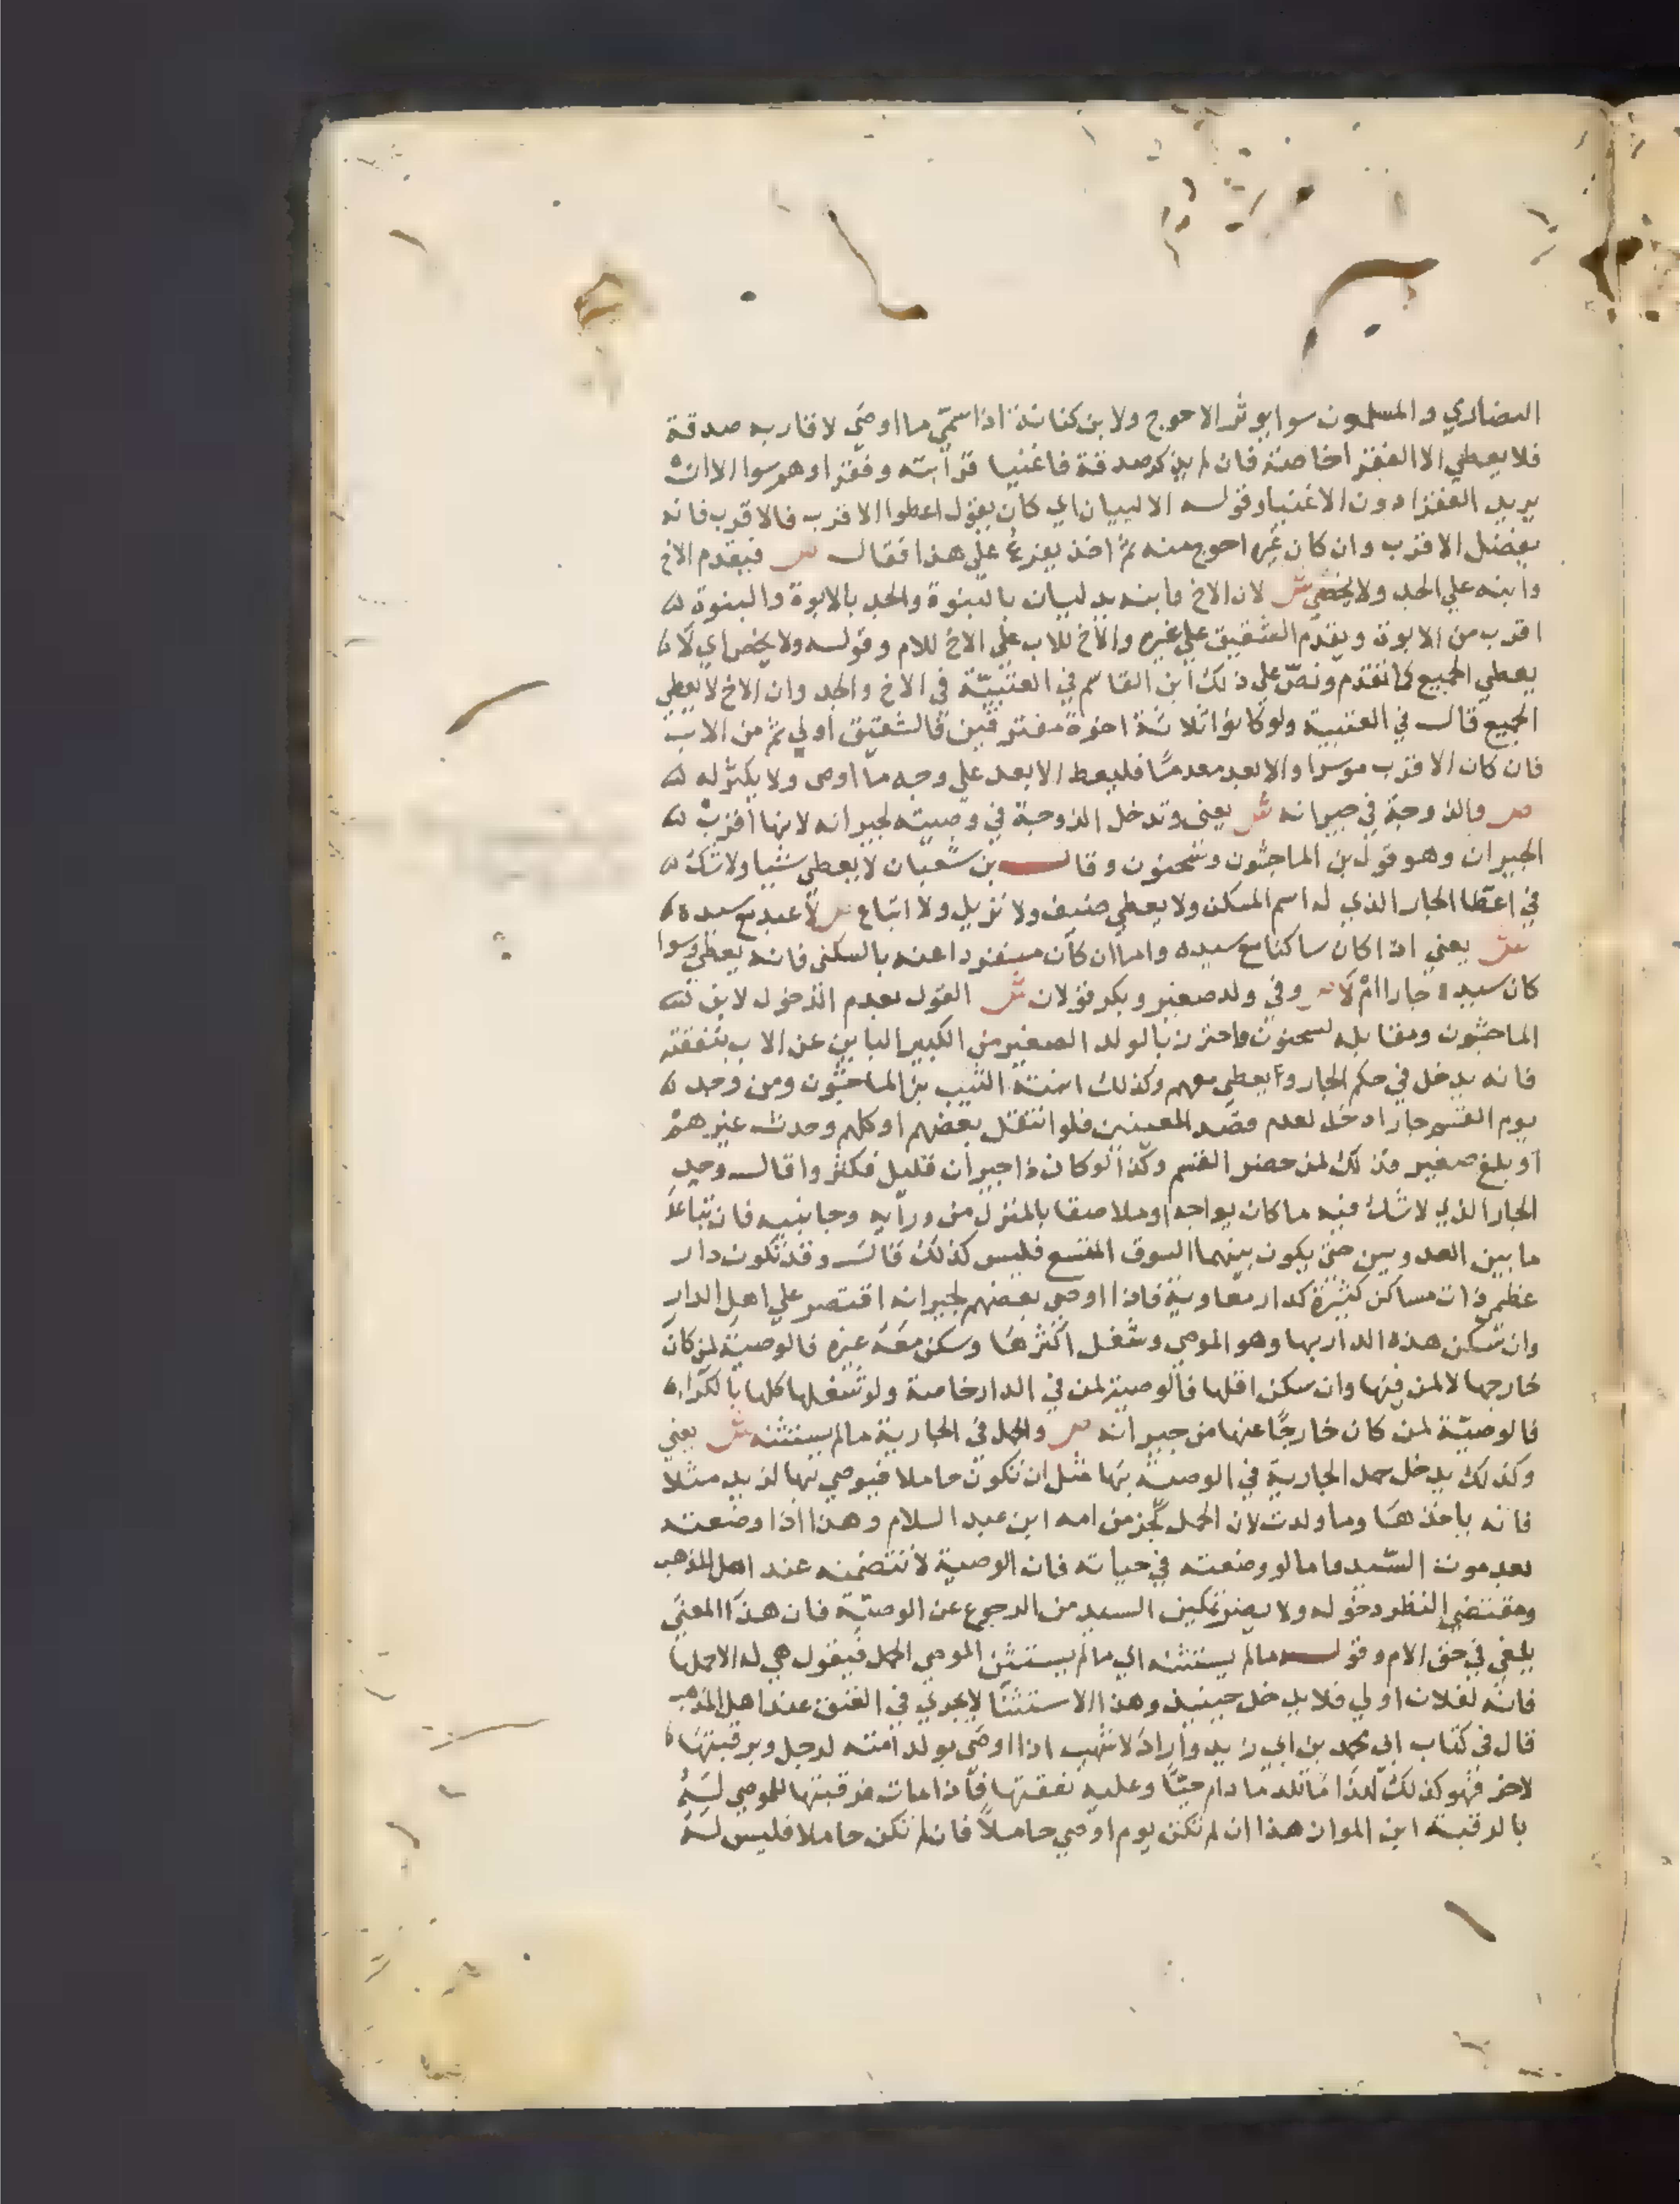 النصارى والمسلمون سوا يوثر الاحوج ولابن كنانة اذا سمي ما اوصي لاقاربه صدقة
فلا يعطي الا الفقرا خاصة فان لم يذكر صدقة فاغنيا قرابته وفقراوهم سوا الا ان
يريد الفقرا دون الاغنيا وقوله الا لبيان اي كان يقول اعطوا الاقرب فالاقرب فانه
يفضل الاقرب وان كان غيره احوج منه ثم اخذ يفرع علي هذا فقال ص فيقدم الاخ
وابنه علي الجد ولا يخص ش لان الاخ وابنه يدليان بالبنوة والجد بالابوة والبنوة
اقرب من الابوة ويقدم الشقيق علي غيره والاخ للاب علي الاخ للام وقوله ولا يخص اي لانه
يعطي الجميع كما تقدم ونص علي ذلك ابن القاسم في العتبية في الاخ والجد وان الاخ لا يعطي
الجميع قال في العتبية ولو كانوا ثلاثة اخوة مفترقين فالشقيق اولي ثم من الاب
فان كان الاقرب موسرا والابعد معدما فليعط الابعد علي وجه ما اوصى ولا يكثر له
ص والزوجة في جيرانه ش يعني وتدخل الزوجة في وصيته لجيرانه لانها اقرب
الجيران وهو قول بن الماجشون وسحنون وقال بن شعبان لا يعطي شيا ولا شك
في اعطا الجار الذي له اسم المسكن ولا يعطي ضيف ولا نزيل ولا اتباع ص لا عبد مع سيده
ش يعني اذا كان ساكنا مع سيده واما ان كان منفردا عنه بالسكنى فانه يعطي وسوا
كان سيده جارا ام لا ص وفي ولد صغير وبكر قولان ش القول بعدم الدخول لابن
الماجشون ومقابله لسحنون واحترز بالولد الصغير من الكبير الباين عن الاب بنفقته
فانه يدخل في حكم الجار ويعطي معهم وكذلك ابنته الثيب بن الماجشون ومن وجد
يوم القسم جارا دخل لعدم قصد المعينين فلو انتقل بعضهم او كلهم وحدث غيرهم
او بلغ صغير فذلك لمن حضر القسم وكذا لو كان ذا جيران قليل فكثروا قال وحد
الجار الذي لا شك فيه ما كان يواجه او ملاصقا بالمنزل من ورايه وجانبيه فان تباعد
ما بين العدوتين حتى يكون بينهما السوق المتسع فليس كذلك قال وقد تكون دار
عظمى ذات مساكن كثيرة كدار معاوية فاذا اوصي بعضهم لجيرانه اقتصر علي اهل الدار
وان سكن هذه الدار ربها وهو الموصي وشغل اكثرها وسكن معه غيره فالوصية لمن كان
خارجها لا لمن فيها وان سكن اقلها فالوصية لمن في الدار خاصة ولو شغلها كلها بالكراء
فالوصية لمن كان خارجا عنها من جيرانه ص والحمل في الجارية ما لم يستثنه ش يعني
وكذلك يدخل حمل الجارية في الوصية بها مثل ان تكون حاملا فيوصي بها لزيد مثلا
فانه ياخذها وما ولدت لان الحمل كجز من امه ابن عبد السلام وهذا اذا وضعته
بعد موت السيد واما لو وضعته في حياته فان الوصية لا تتضمنه عند اهل المذهب
ومقتضي النظر دخوله ولا يضر تمكين السيد من الرجوع عن الوصية فان هذا المعني
يلغي في حق الام وقوله ما لم يستثنه اي ما لم يستثن الموصي الحمل فيقول هي له الا حملها
فانه لفلان او لي فلا يدخل حينيذ وهذا الاستثنا لا يجري في العتق عند اهل المذهب
قال في كتاب ابي محمد بن ابي زيد واراه لاشهب اذا اوصي بولد امته لرجل وبرقبتها
لاخر فهو كذلك لهذا ما تلد ما دام حيا وعليه نفقتها فاذا مات فرقبتها للموصي له
بالرقبة ابن المواز هذا ان لم تكن يوم اوصي حاملا فان لم تكن حاملا فليس له